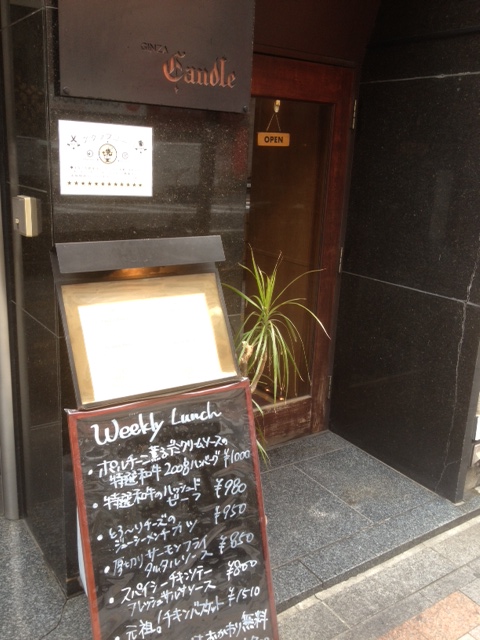 GINZA
Candle
OPEN
Weekly Lunch
・ポルチーニ薫るクリームソースの
特選和牛200gハンバーグ ¥1000
・特選和牛のハッシュド
ビーフ ¥980
・とろ〜りチーズの
ジューシーメンチカツ ¥950
・厚切りサーモンフライ
タルタルソース ¥850
・スパイシーチキンソテー
フレッシュサルサソース ¥800
・元祖!チキンバスケット ¥1510
おかわり無料